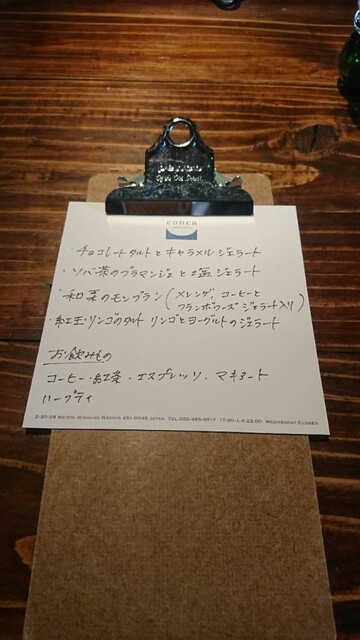 conca
・チョコレートタルトとキャラメルジェラート
・ソバ茶のブラマンジェと塩ジェラート
・和栗のモンブラン(メレンゲ、コーヒーと
フランボワーズジェラート入り)
・紅玉リンゴのタルト リンゴとヨーグルトのジェラート
お飲みもの
コーヒー・紅茶・エスプレッソ・マキアート
ハーブティ
NAGOYA 451-0045 JAPAN TEL 052-485-5517 17:30~L.O 22:00 WEDNESDAY CLOSED